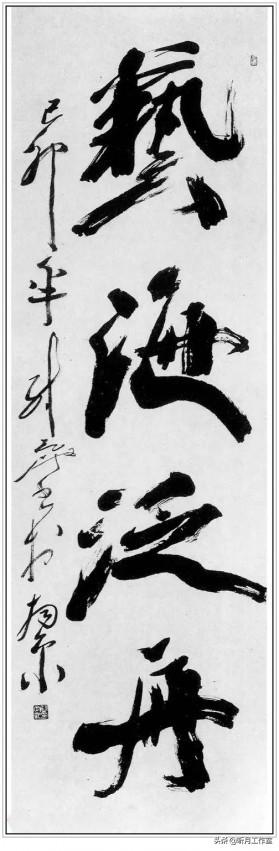 藝海泛舟
己卯年 書於南京
头条@听月工作室